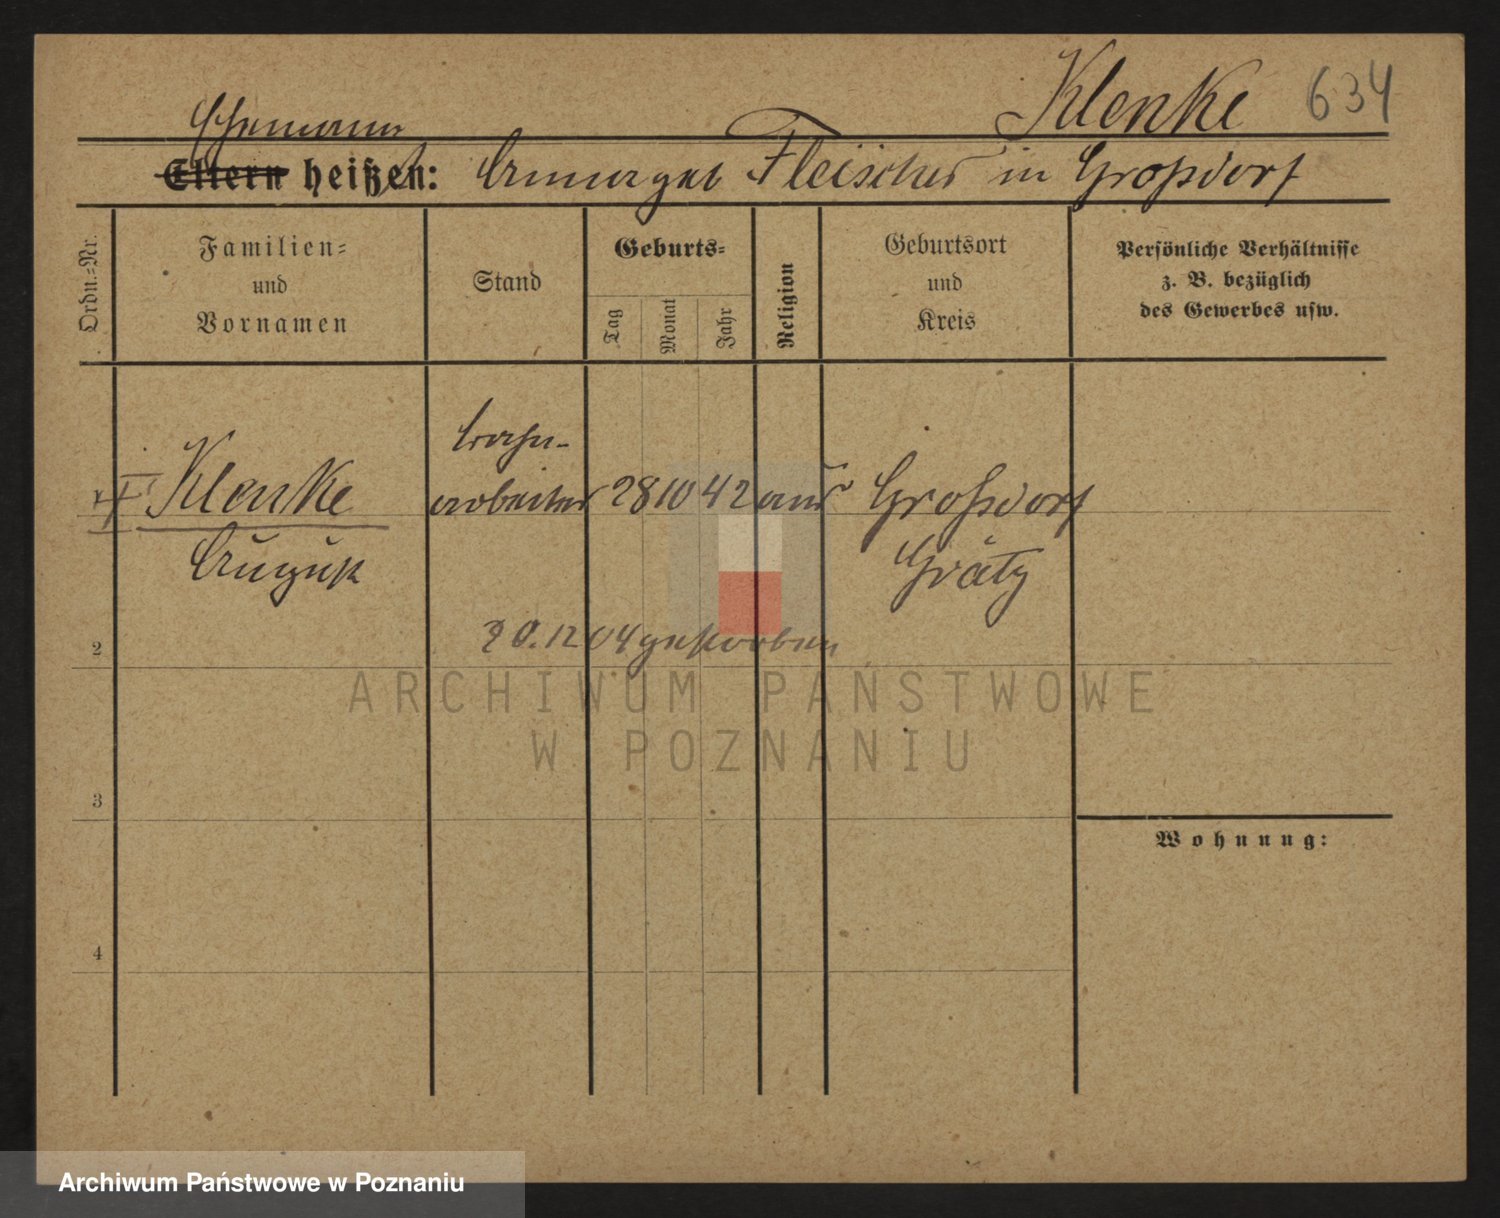 Klenke 634
Ehemann
Eltern heißen: Fleischer in Großdorf
Ordn.-Nr.
Familien-
und
Vornamen
Stand
Geburts-
Tag
Monat
Jahr
Religion
Geburtsort
und
Kreis
Persönliche Verhältnisse
z. B. bezüglich
des Gewerbes usw.
Bahn-
Klenke arbeiter 28 10 42 Großdorf
August Grätz
20.12 04 gestorben
2
ARCHIWUM PAŃSTWOWE
W POZNANIU
3
Wohnung:
4
Archiwum Państwowe w Poznaniu